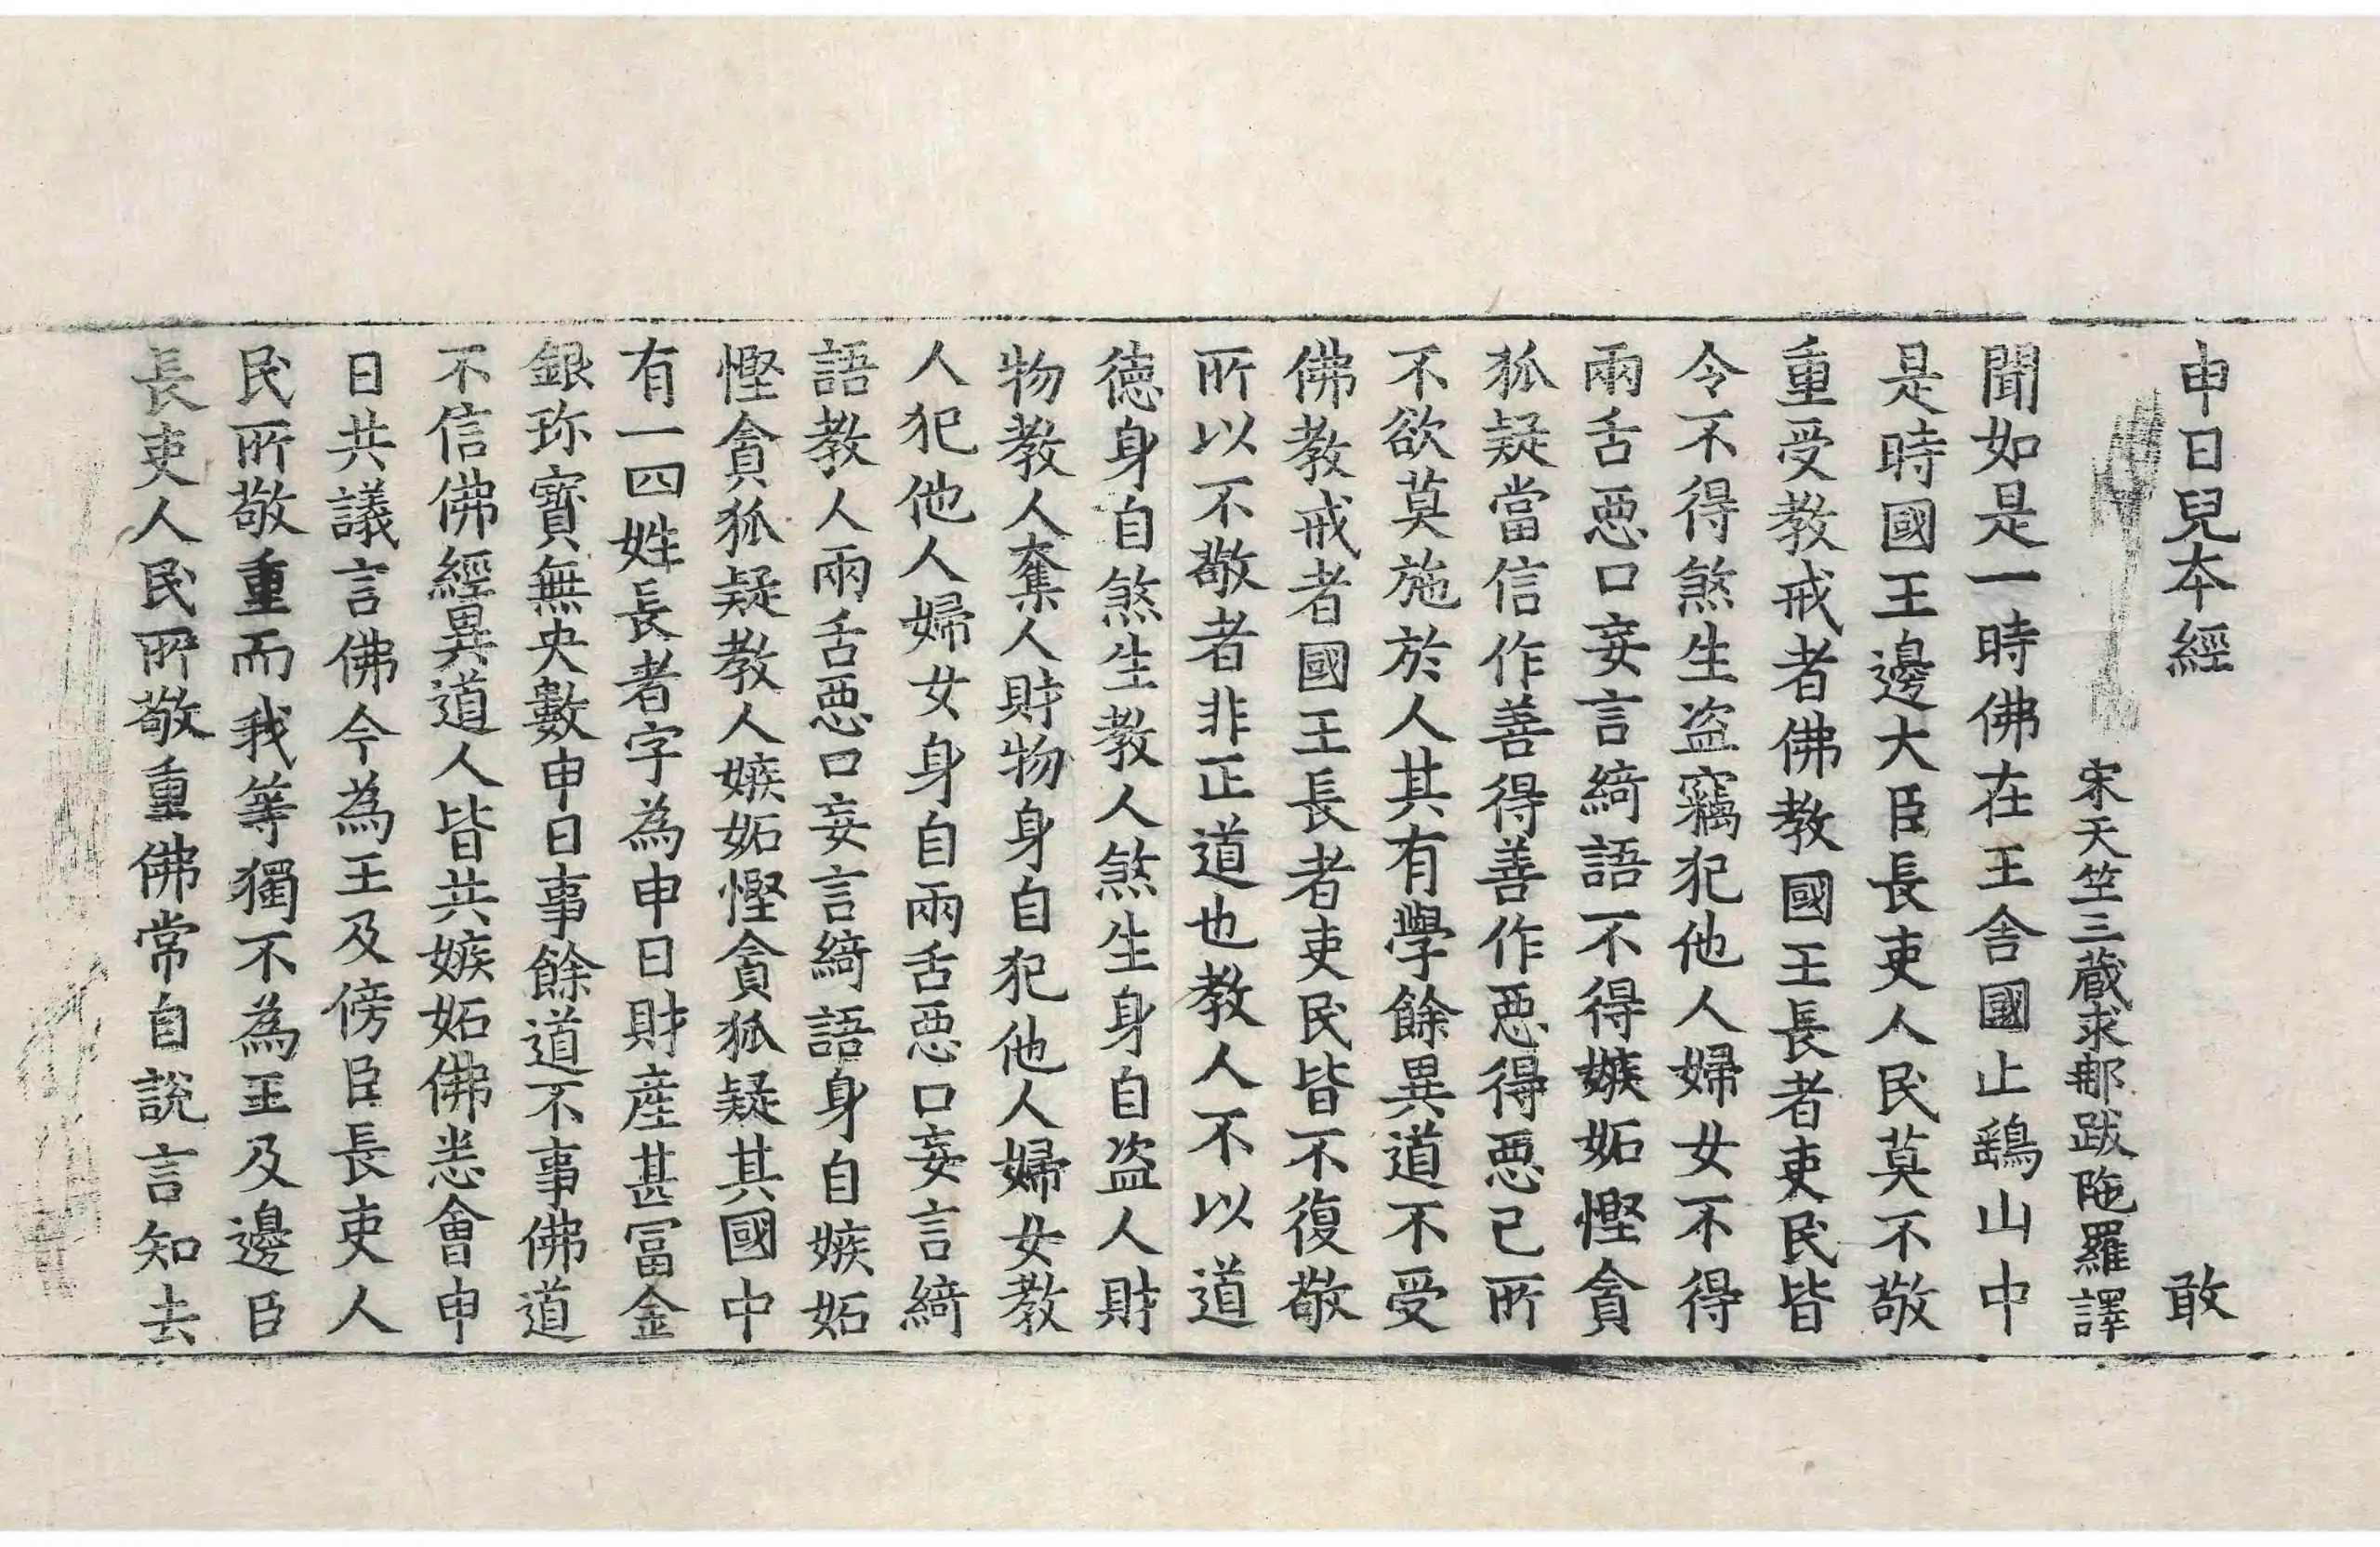 申日兒夲經　敢
宋天竺三藏求那跋陁羅譯
聞如是一時佛在王舍國止鷂山中
是時國王邊大臣長吏人民莫不敬
重受教戒者佛教國王長者吏民皆
令不得煞生盗竊犯他人婦女不得
兩舌惡口妄言綺語不得嫉妬慳貪
狐疑當信作善得善作惡得惡己所
不欲莫施於人其有學餘異道不受
佛教戒者國王長者吏民皆不復敬
所以不敬者非正道也教人不以道
徳身自煞生教人煞生身自盗人財
物教人奪人財物身自犯他人婦女教
人犯他人婦女身自兩舌惡口妄言綺
語教人兩舌惡口妄言綺語身自嫉妬
慳貪狐疑教人嫉妬慳貪狐疑其國中
有一四姓長者字為申日財産甚冨金
銀珎寶無央數申日事餘道不事佛道
不信佛經異道人皆共嫉妬佛悉會申
日共議言佛今為王及傍臣長吏人
民所敬重而我等獨不為王及邊臣
長吏人民所敬重佛常自說言知去